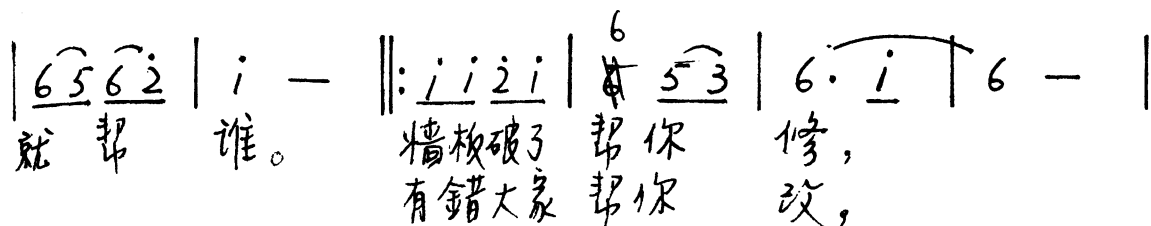 6
| 6 5 6 2̇ | i̇ — ‖: i̇ i̇ 2̇ i̇ | 5 3 | 6 · i̇ | 6 — |
就 帮 谁。 墙板破了 帮你 修，
有錯大家 帮你 改，